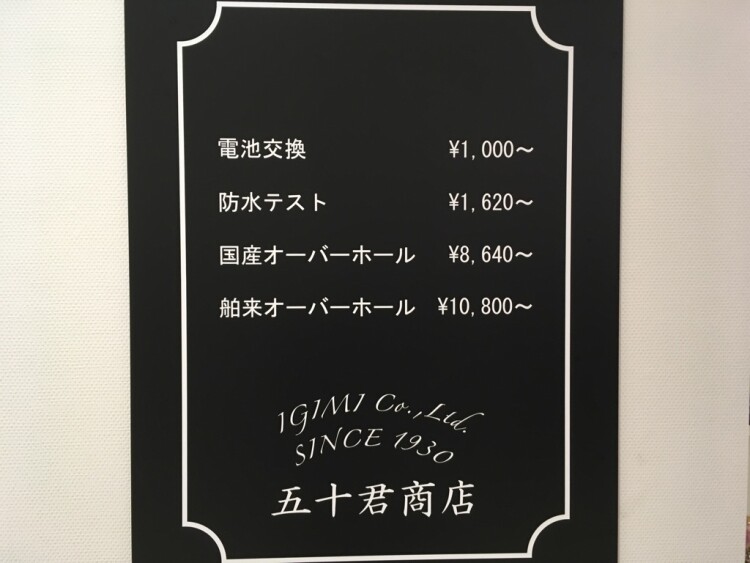 電池交換 ¥1,000～
防水テスト ¥1,620～
国産オーバーホール ¥8,640～
舶来オーバーホール ¥10,800～
IGIMI Co.,Ltd.
SINCE 1930
五十君商店